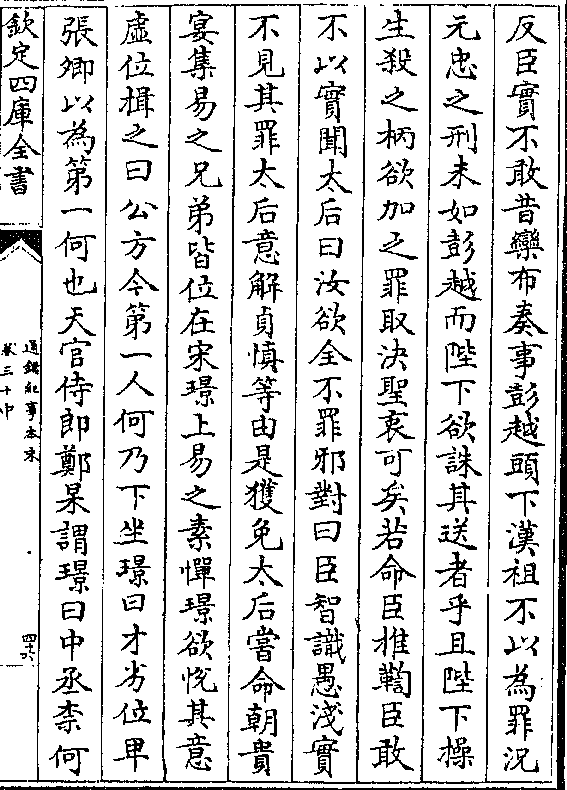 反臣實不敢昔欒布奏事彭越頭下漢祖不以為罪況
元忠之刑未如彭越而陛下欲誅其送者乎且陛下操
生殺之柄欲加之罪取決聖衷可矣若命臣推鞫臣敢
不以實聞太后曰汝欲全不罪邪對曰臣智識愚淺實
不見其罪太后意解貞慎等由是獲免太后嘗命朝貴
宴集易之兄弟皆位在宋璟上易之素憚璟欲悅其意
虛位揖之曰公方今第一人何乃下坐璟曰才劣位卑
張卿以為第一何也天官侍郎鄭杲謂璟曰中丞柰何
欽定四庫全書
通鑑紀事本末
卷三十中
四十六